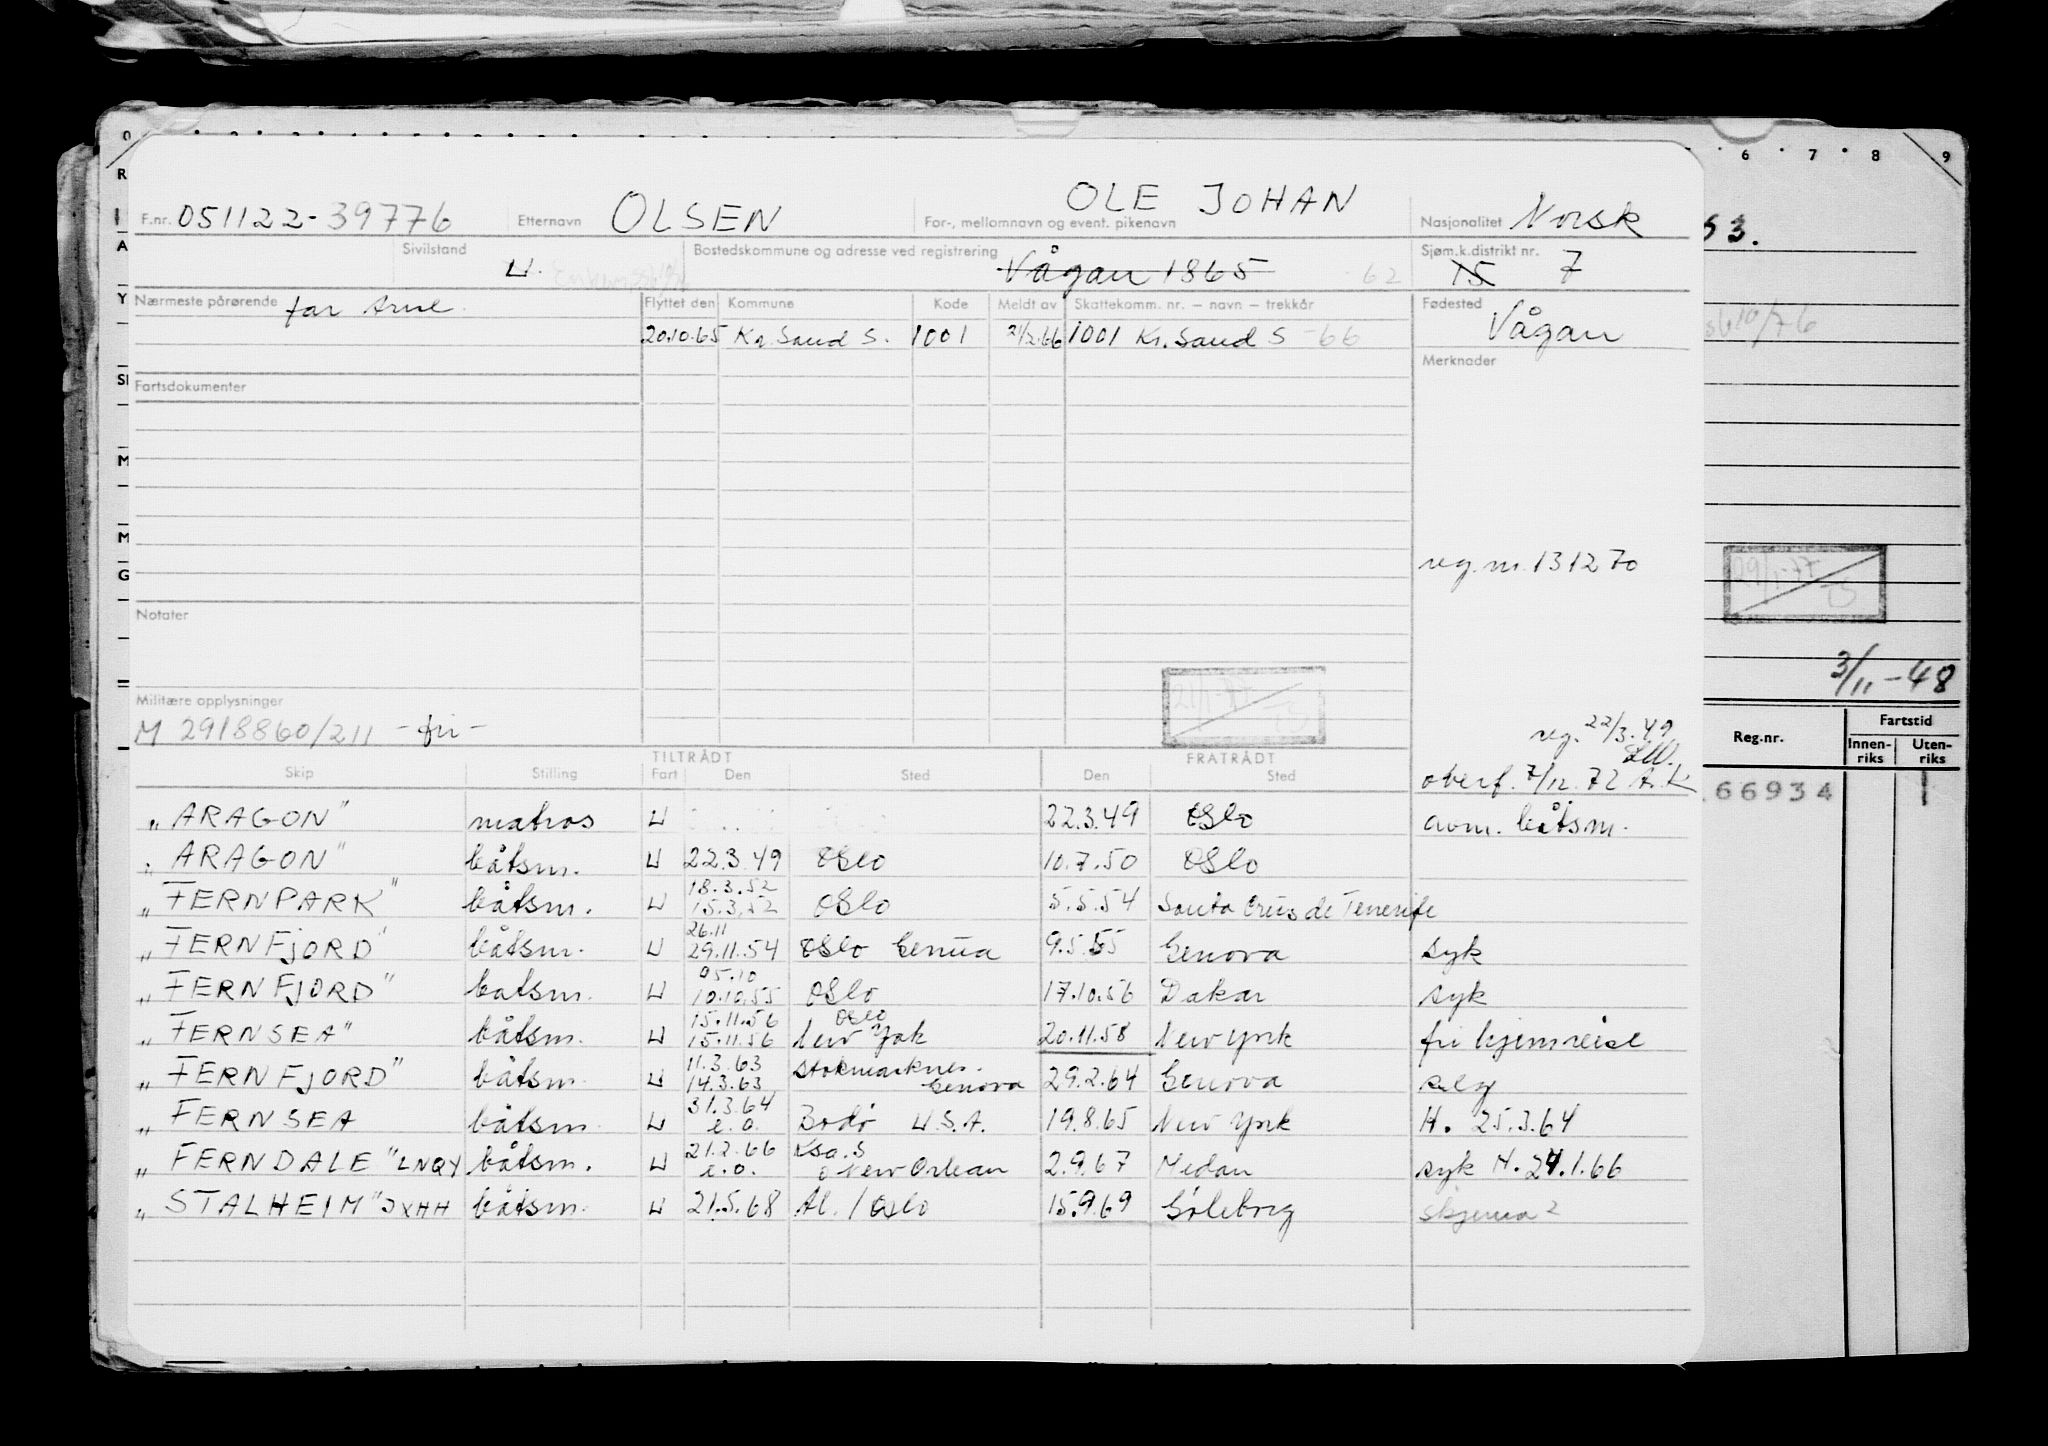 O 6 7 8 9
R
A
Y
SI
M
M
G
OLE JOHAN
F.nr. 051122-39776 Etternavn OLSEN For-, mellomnavn og event. pikenavn Nasjonalitet Norsk
Sivilstand U. Bostedskommune og adresse ved registrering Vågan 1865 62 Sjøm.k.distrikt nr. 15 7
Nærmeste pårørende far Arne. Flyttet den Kommune Kode Meldt av Skattekomm. nr. – navn – trekkår Fødested
20.10.65 Kr. Sand S. 1001 21/2.66 1001 Kr. Sand S -66 Vågan
Merknader
Fartsdokumenter
reg. nr. 131270
Notater
Militære opplysninger
M 2918860/211 -fri-
reg. 22/3.49
overf. 7/12.72 A.K
TILTRÅDT FRATRÅDT
Skip Stilling Fart Den Sted Den Sted
„ARAGON" matros U 22.3.49 Oslo avm. båtsm.
„ARAGON" båtsm. U 22.3.49 Oslo 10.7.50 Oslo
„FERNPARK" båtsm. U 18.3.52 15.3.52 Oslo 5.5.54 Santa Crus de Tenerife
„FERNFJORD" båtsm. U 26.11 29.11.54 Oslo Genua 9.5.55 Genova syk
„FERNFJORD" båtsm. U 05.10 10.10.55 Oslo 17.10.56 Dakar syk
„FERNSEA" båtsm. U 15.11.56 15.11.56 Oslo New York 20.11.58 New York fri hjemreise
„FERNFJORD" båtsm. U 11.3.63 14.3.63 Stokmarknes. Genova 29.2.64 Genova selg
„FERNSEA båtsm. U 31.3.64 e.o. Bodø U.S.A. 19.8.65 New York H. 25.3.64
„FERNDALE" LNQY båtsm. U 21.2.66 e.o. Ksa.S New Orlean 2.9.67 Medan syk H. 24.1.66
„STALHEIM" JXHH båtsm. U 21.5.68 Al. / Oslo 15.9.69 Göteborg skjema 2
53.
3/11-48
Reg.nr. Fartstid
Innen-riks Uten-riks
66934